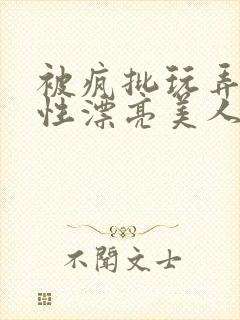 被疯批玩弄
性漂亮美人
不闻文士